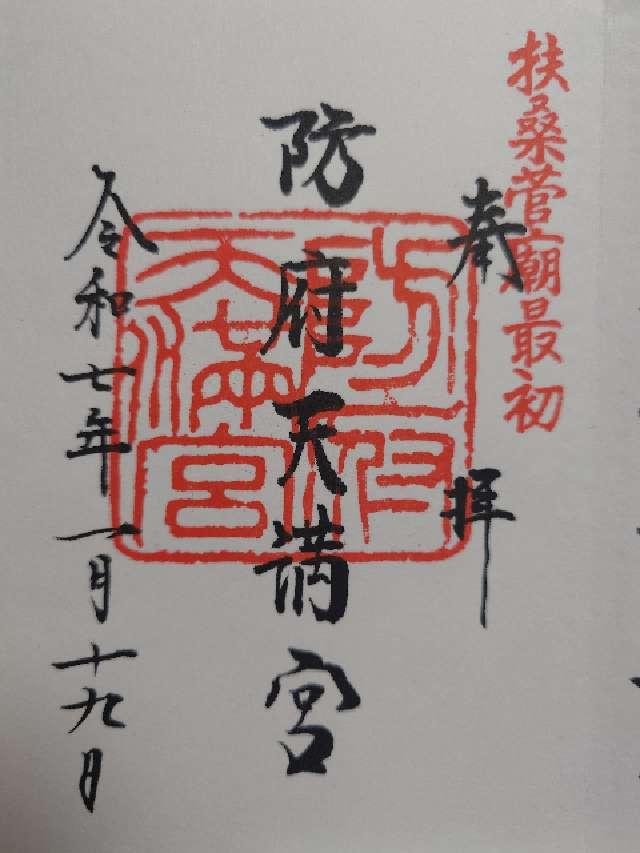 扶桑菅廟最初
奉拝
防府天満宮
防府天満宮
令和七年一月十九日